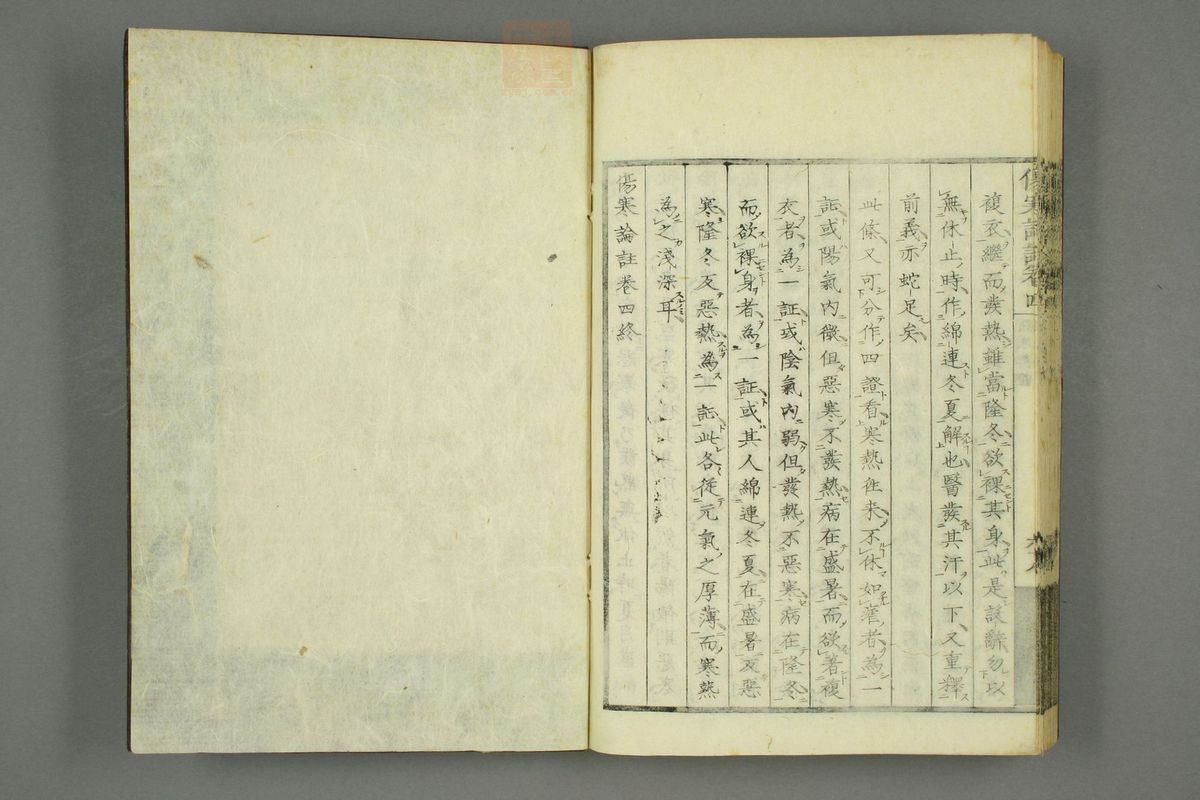 複衣繼而發熱雖當隆冬欲裸其身此是設辭勿以
無休止時作綿連冬夏解也醫發其汗以下又重釋
前義亦蛇足矣
此條又可分作四證看寒熱往来不休如瘧者為一
証或陽氣內微但惡寒不發熱病在盛暑而欲著複
衣者為一証或陰氣內弱但發熱不惡寒病在隆冬
而欲裸身者為一証或其人綿連冬夏在盛暑反惡
寒隆冬反惡熱為一証此各從元氣之厚薄而寒熱
為之淺深耳
傷寒論註卷四終